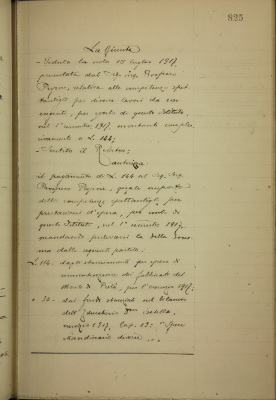 825
La Giunta
- Veduta la nota 10 luglio 1917,
presentata dal Sig. Ing. Prospero
relativa alle competenze spet-
tantigli per diversi lavori da esso
eseguiti, per conto di questo Istituto,
nel 1° semestre 1917, ammontanti comples-
sivamente a L. 144;
- Sentito il Relatore;
Autorizza
il pagamento di L. 144 al Sig. Ing.
quale importo
delle competenze spettantigli per
prestazioni d'opera, per conto di
questo Istituto, nel 1° semestre 1917,
mandando prelevarsi la detta som-
ma dalle seguenti partite:
L. 114.- dagli stanziamenti per spese di
manutenzione dei fabbricati del
Monte di Pietà, per l'esercizio 1917.
" 30.- dal fondo stanziato nel bilancio
dell'
esercizio 1917, Cap. "Spese
diverse".